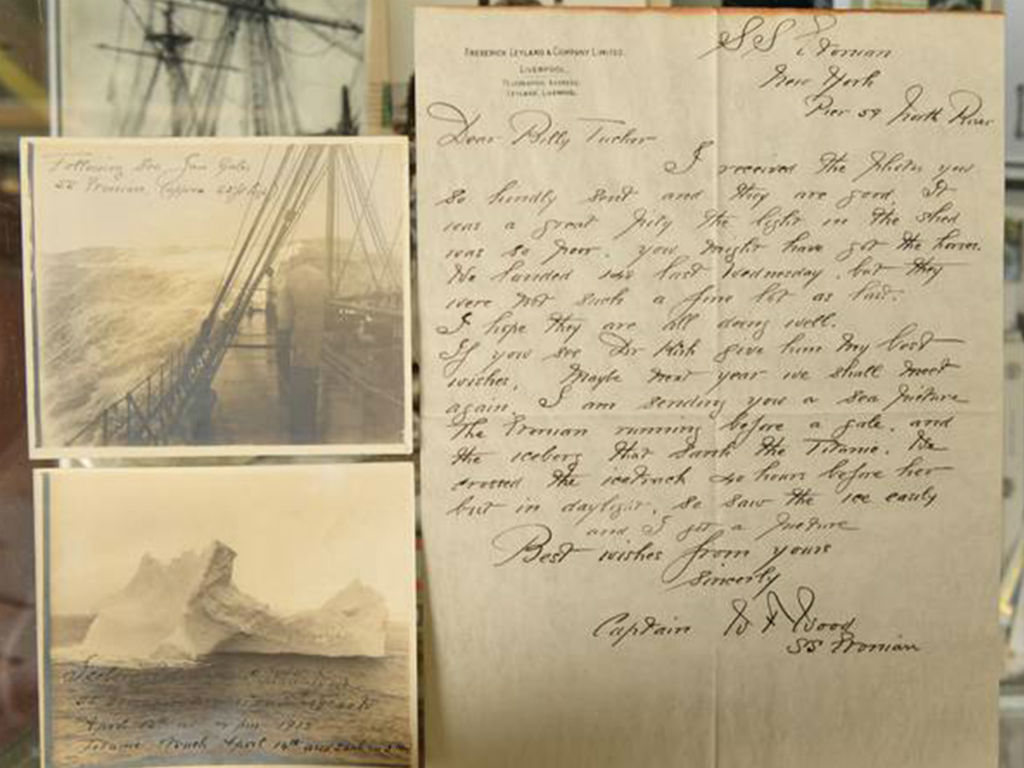 Following Sea. Gale
SS
Iceberg
April 12th 1912
Titanic struck April 14th and
FREDERICK LEYLAND & COMPANY LIMITED.
LIVERPOOL.
TELEGRAPHIC ADDRESS,
LEYLAND, LIVERPOOL.
SS Etonian
New York
Pier 59 North River
Dear Billy Tucker
I received the photos you
so kindly sent and they are good. It
was a great pity the light in the shed
was so poor. you might have got the horses.
We landed last Wednesday. but they
were not such a fine lot as last.
I hope they are all doing well.
If you see Dr give him my best
wishes. Maybe next year we shall meet
again. I am sending you a sea picture
the Etonian running before a gale. and
the iceberg that sank the Titanic. We
crossed the icetrack 40 hours before her
but in daylight. so saw the ice easily
and I got a picture
Best wishes from yours
sincerly
Captain W F Wood
SS Etonian